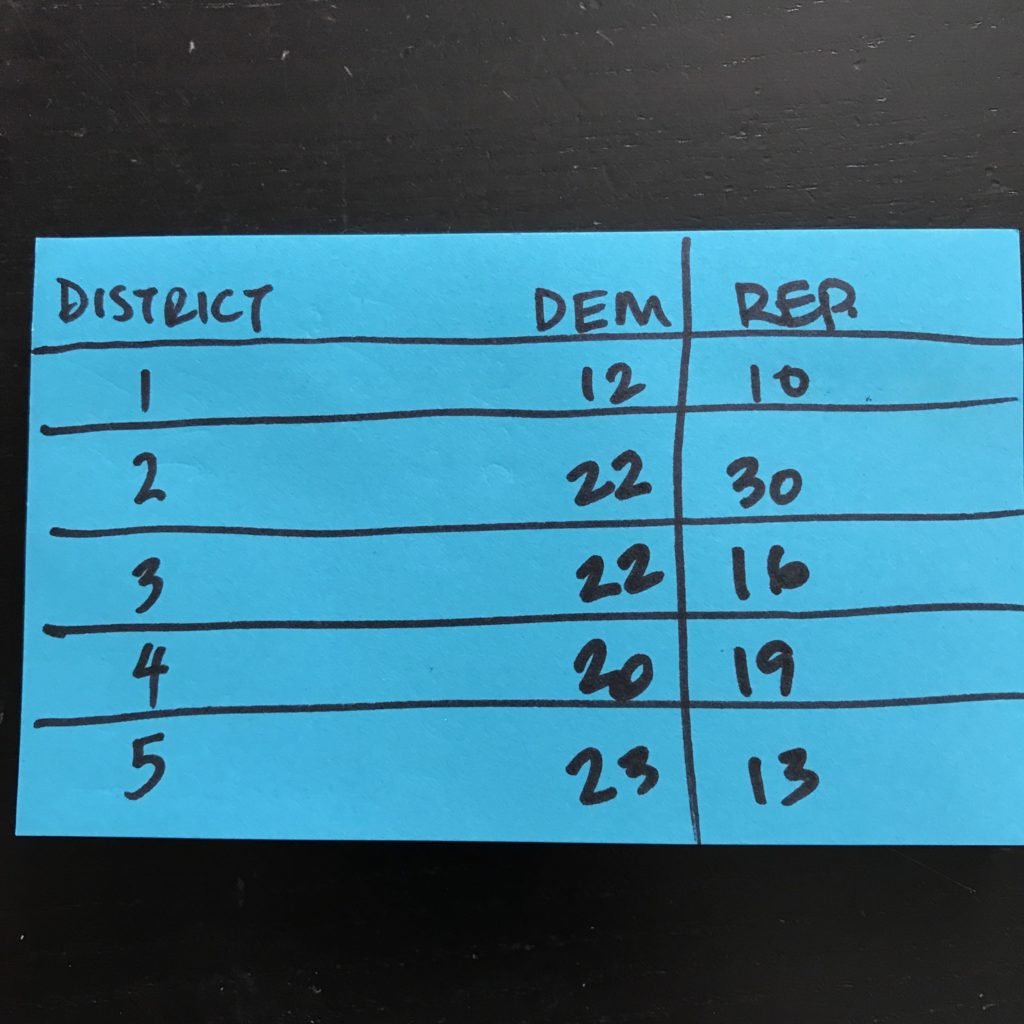 DISTRICT DEM REP.
1 12 10
2 22 30
3 22 16
4 20 19
5 23 13